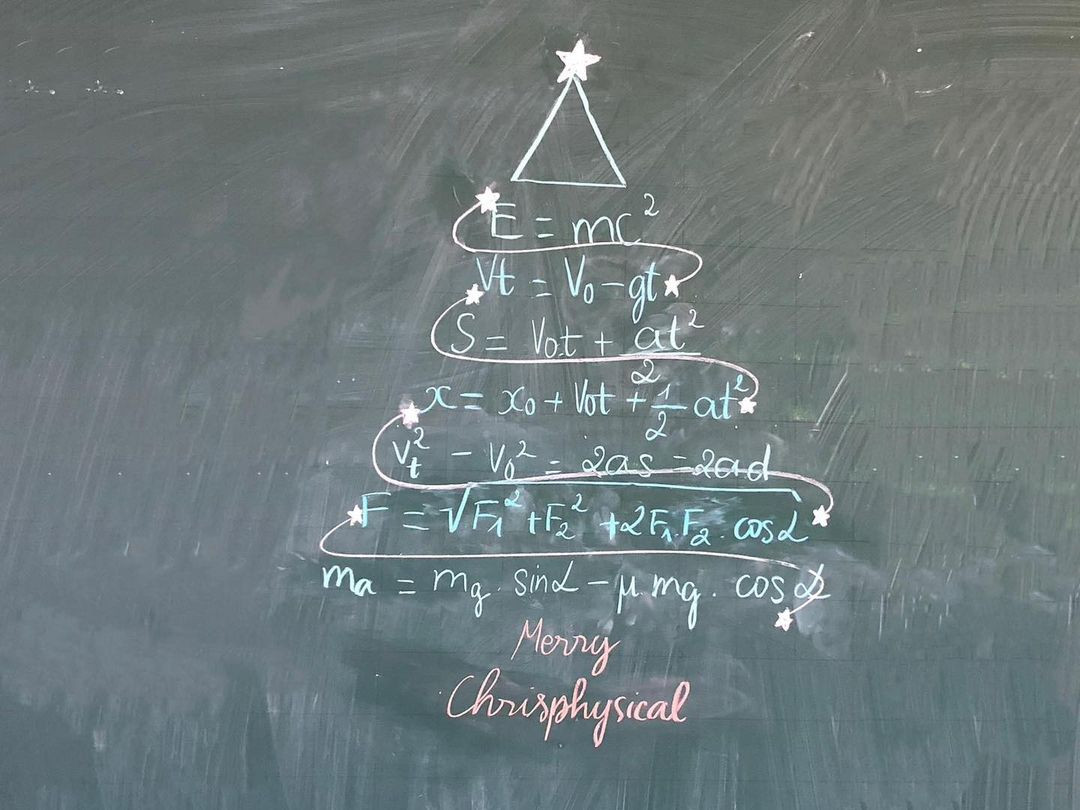 E = mc²
Vt = V₀ - gt
S = V₀.t + at²/2
x = x₀ + V₀t + 1/2 at²
Vt² - V₀² = 2as = 2ad
F = √(F₁² + F₂² + 2F₁.F₂.cosα)
ma = mg.sinα - μ.mg.cosα
Merry
Chrisphysical